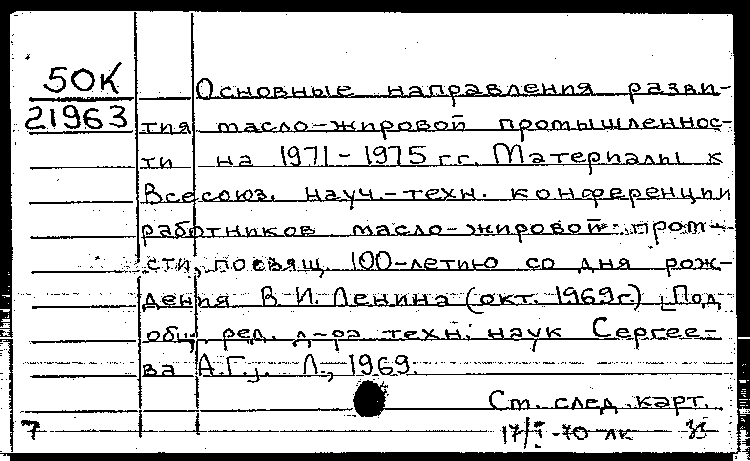 50К
21963
Основные направления разви-
тия масло-жировой промышленнос-
ти на 1971-1975 г.г. Материалы к
Всесоюз. науч.-техн. конференции
работников масло-жировой пром-
сти, посвящ. 100-летию со дня рож-
дения В.И. Ленина (окт. 1969г.) [Под
общ. ред. д-ра техн. наук Сергее-
ва А.Г.]. Л., 1969.
Ст. след. карт.
7 17/I-70 лк